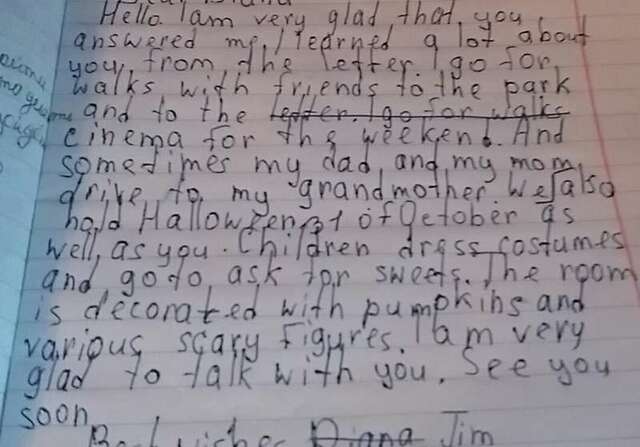 Hello I am very glad that you
answered me, I learned a lot about
you from the letter. I go for
walks with friends to the park
and to the letter. I go for walks
cinema for the weekend. And
sometimes my dad and my mom
drive to my grandmother. We also
hold Halloween 31 of October as
well, as you. Children dress costumes
and go to ask for sweets. The room
is decorated with pumpkins and
various scary figures. I am very
glad to talk with you. See you
soon
Best wishes Diana Jim